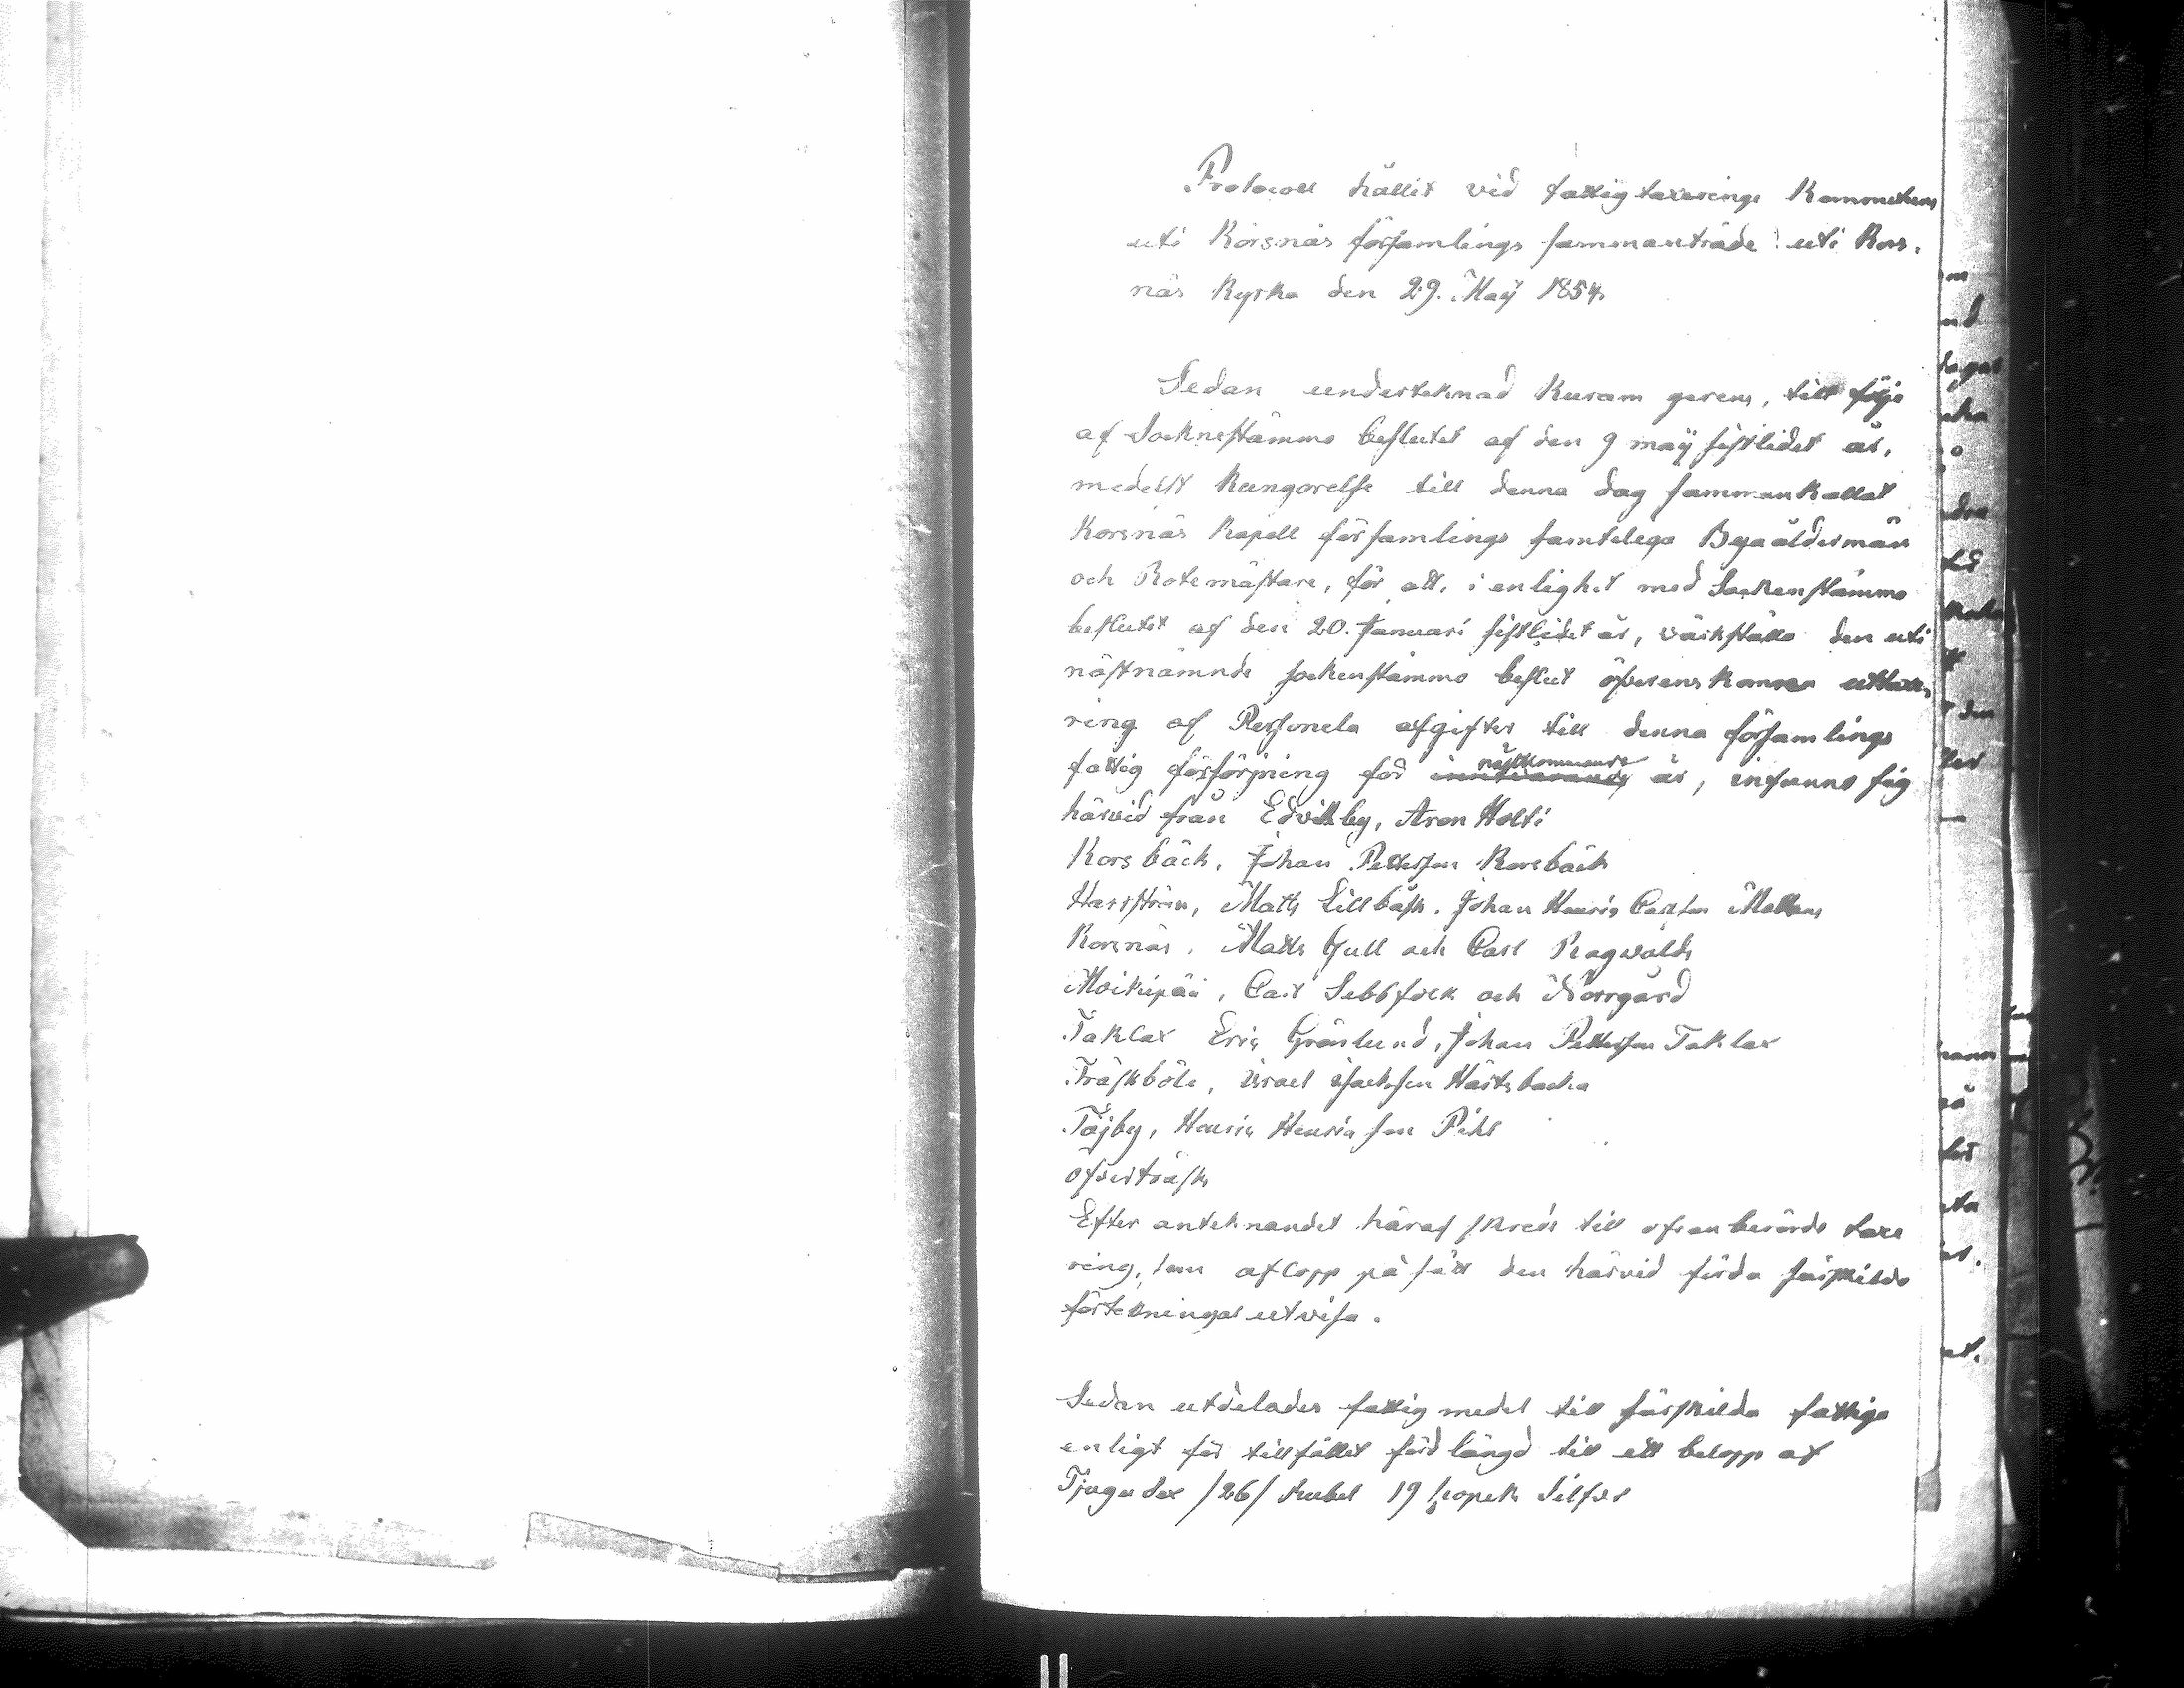 Protocoll hållit vid fattigtaxerings Kommitens
uti Korsnäs församlings sammanträde uti Kors-
näs Kyrka den 29. Maÿ 1854.
Sedan underteknad Kuram gerens, till följe
af Socknestämmo beslutet af den 9 maÿ sistlidet år,
medelst Kungörelse till denna dag sammankallat
Korsnäs Kapell församlings samtelega Byaåldermän
och Rotemästare, för att, i enlighet med Sockenstämmo
beslutet af den 20. Januari sistlidet år, värkställa den uti
nästnämnde sockenstämmo beslut öfverenskomna uttaxe-
ring af Personela afgifter till denna församlings
fattig försörjning för nästkommande år, infunno sig
härvid från Edvikby, Aron Holti
Korsbäck, Johan Pettersson Korsbäck
Harrström, Matts Lillbåsk, Johan Henric Carlson Mellans
Korsnäs, Matts Gull och Carl Ragwalds
Moikipää, Carl Sebbfolk och Norrgård
Taklax Eric Grönlund, Johan Pettersson Taklax
Träskböle, Israel Isacksson Hästbacka
Töjby, Henric Henricsson Pihl
öfverträsk
Efter anteknandet häraf skreds till ofvanberörde taxe
ring, som aflopp på sätt den härvid förda särskilda
förtekningar utvisa.
Sedan utdelades fattig medel till särskilda fattiga
enligt för tillfället förd längd till ett belopp af
Tjugu sex /26/ rubel 19 kopek Silfver